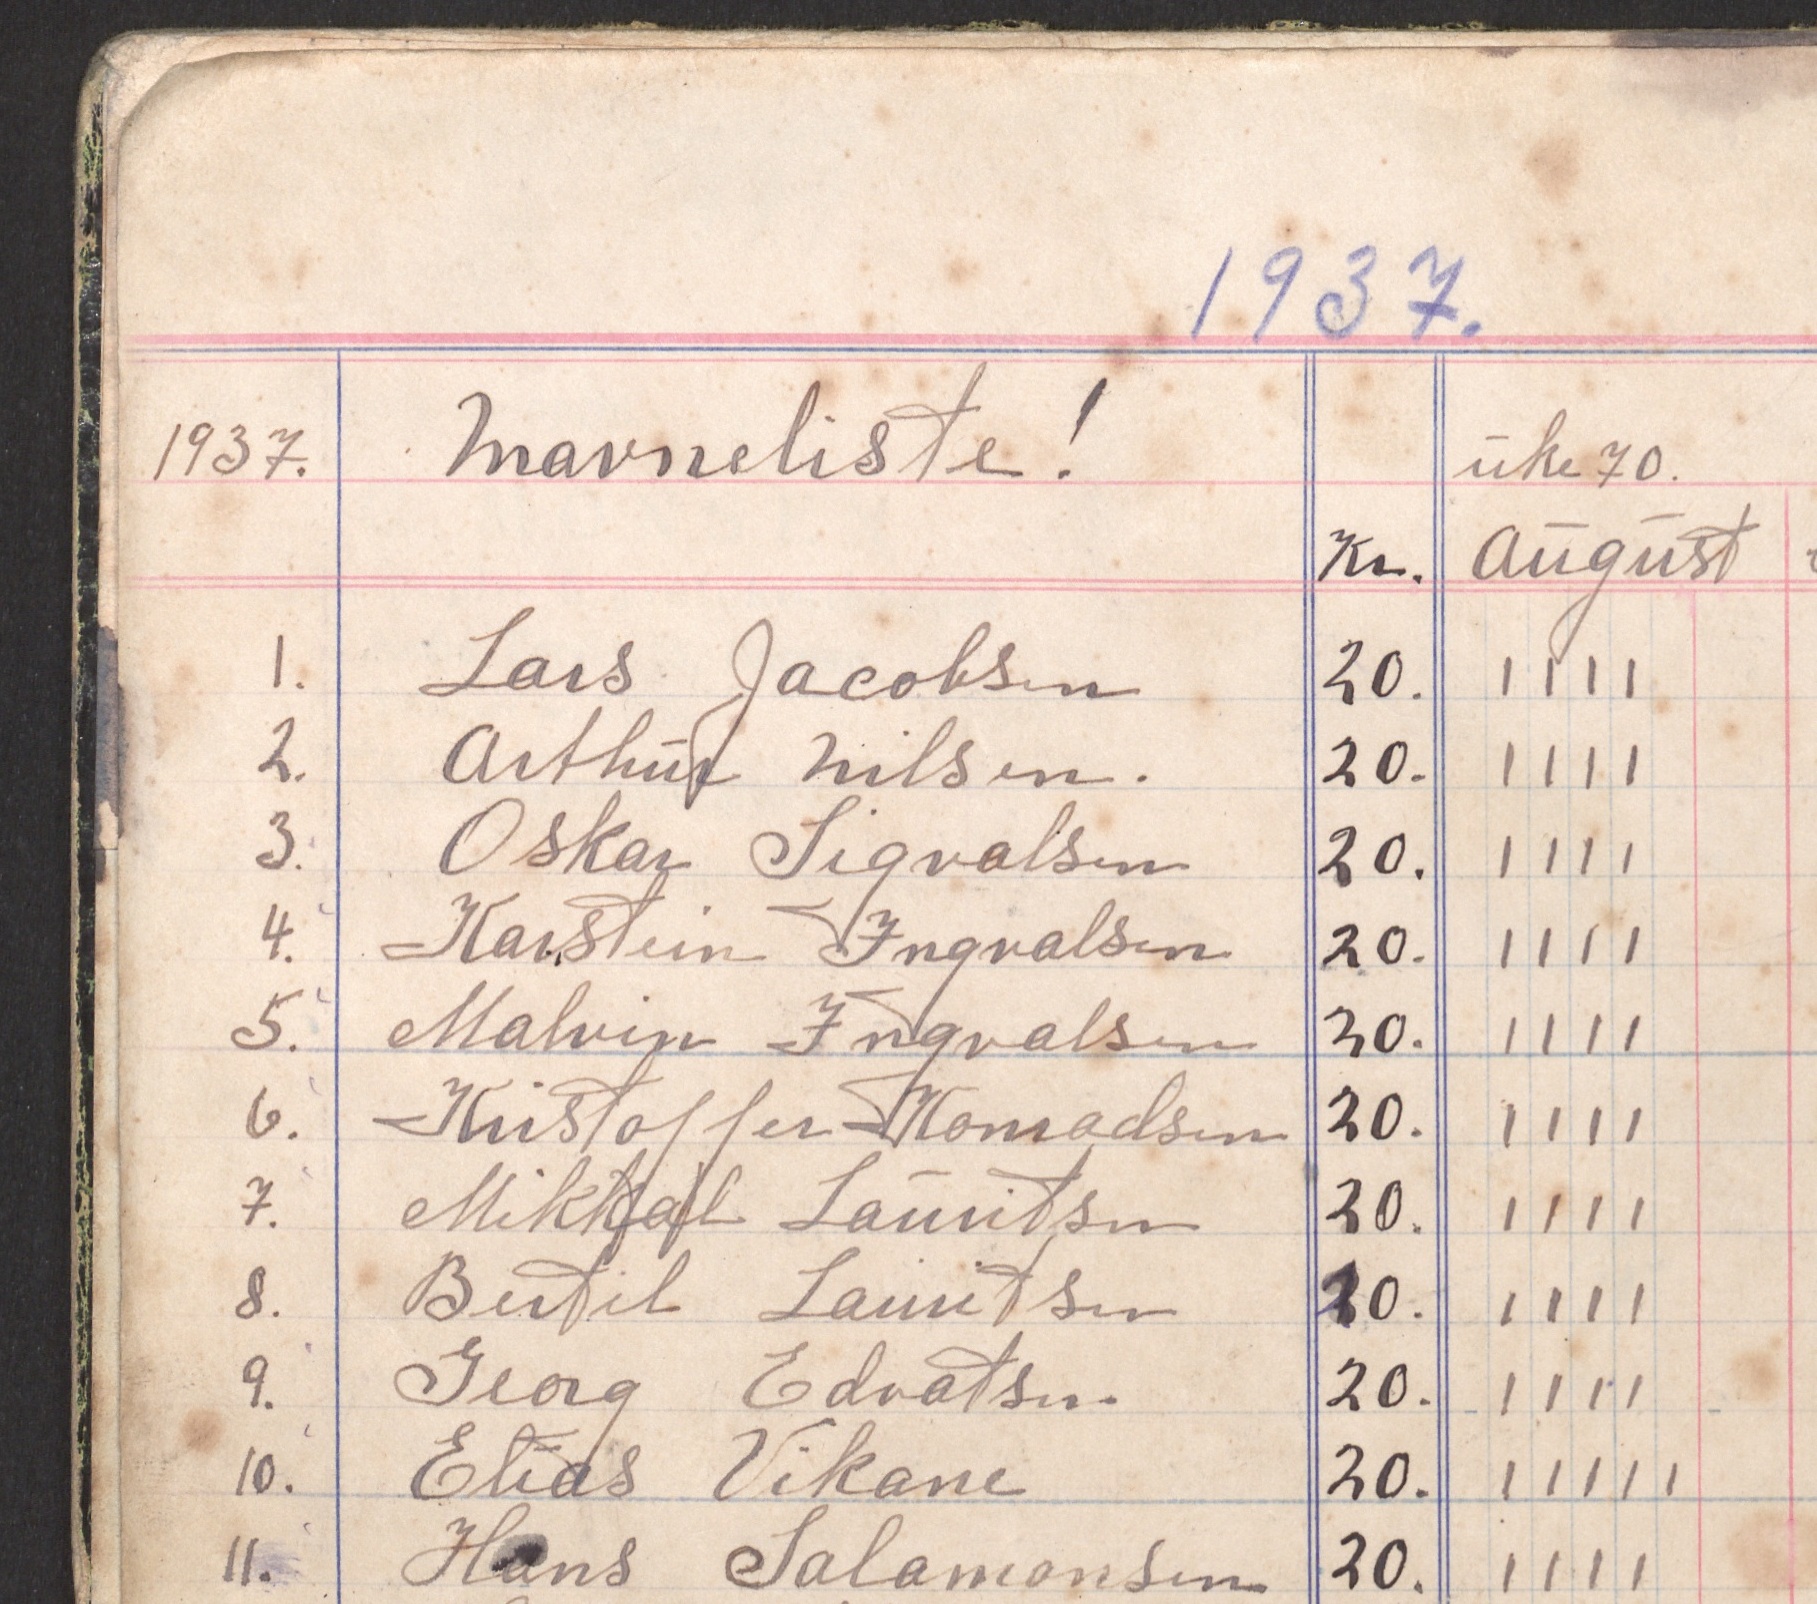 1937.
1937. Mavneliste! uke 70.
Kr. August
1. Lars Jacobsen 20. ||||
2. Arthur Nilsen. 20. ||||
3. Oskar Sigvalsen 20. ||||
4. Karstein Ingvalsen 20. ||||
5. Malvin Ingvalsen 20. ||||
6. Kristoffer Konradsen 20. ||||
7. Mikkal Lauritsen 20. ||||
8. Bertil Lauritsen 20. ||||
9. Georg Edvatsen. 20. ||||
10. Elias Vikane 20. |||||
11. Hans Salamonsen 20. ||||